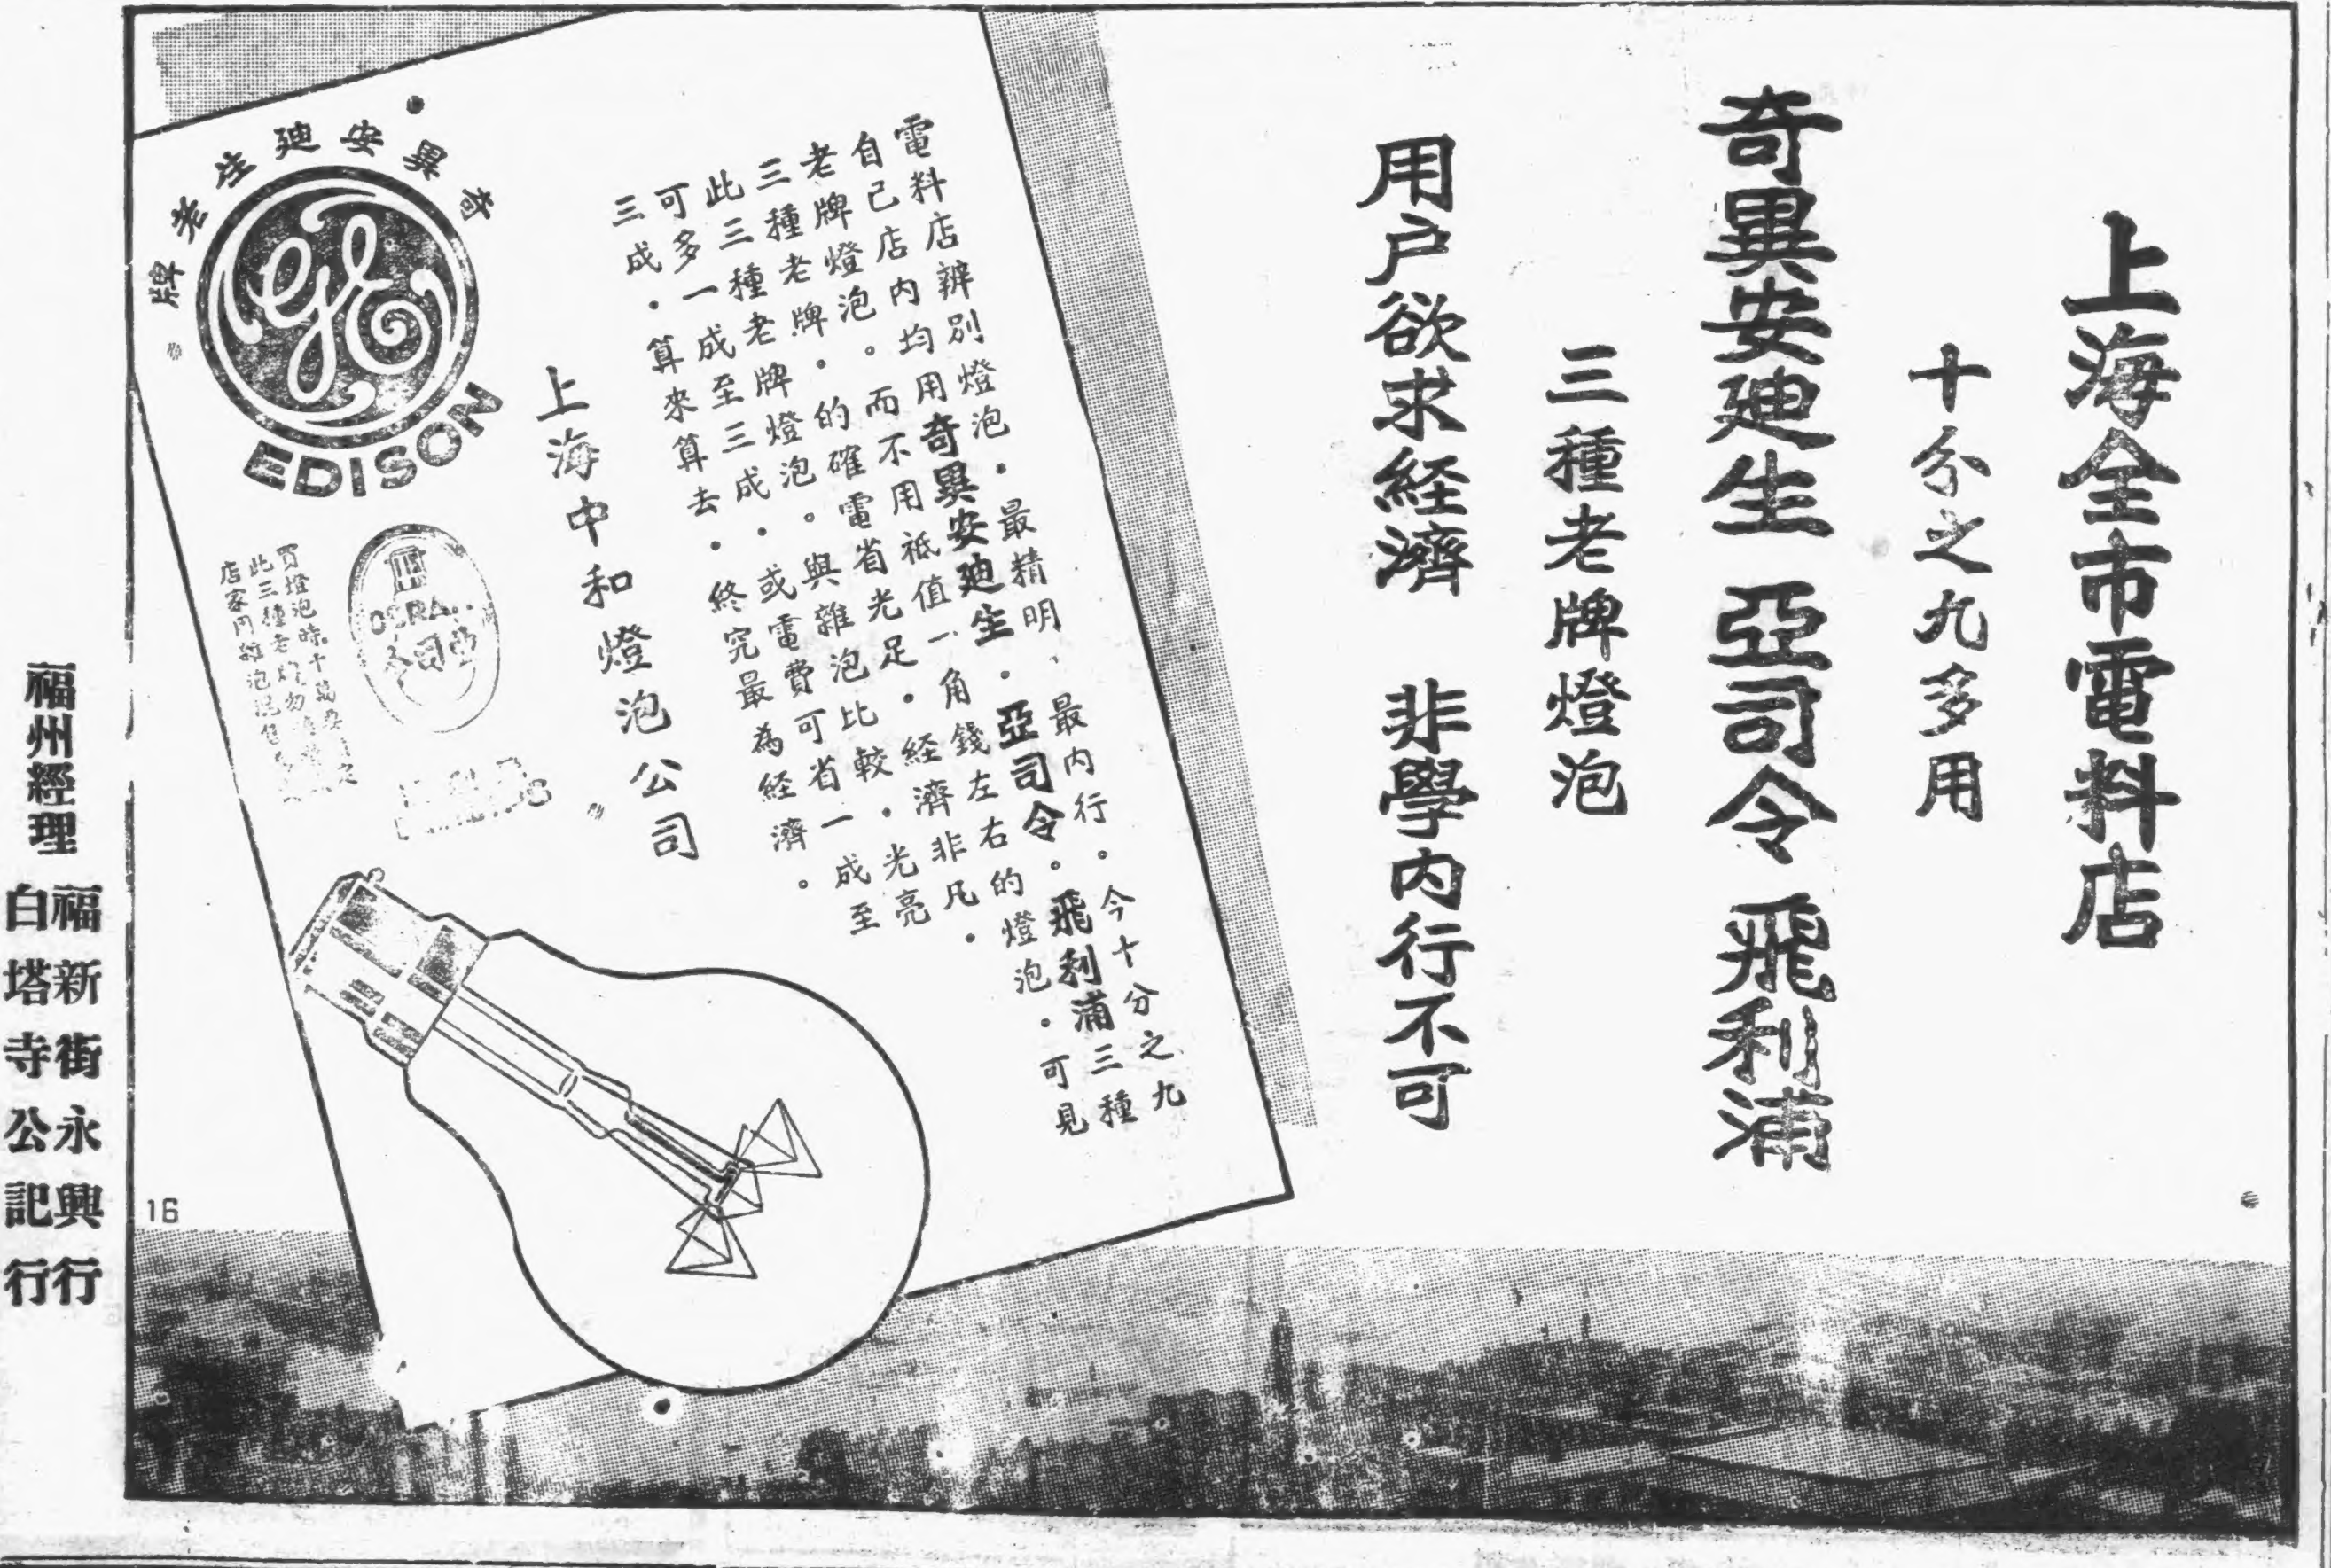 上海全市電料店
十分之九多用
奇異安廸生 亞司令 飛利浦
三種老牌燈泡
用户欲求経濟 非學内行不可
電料店辨别燈泡．最精明、最内行。今十分之九
自己店内均用奇異安廸生．亞司令。飛利浦三種
老牌燈泡。而不用祗值一角錢左右的燈泡．可見
三種老牌．的確電省光足．経濟非凡．
此三種老牌燈泡。與雜泡比較．光亮
可多一成至三成．或電費可省一成至
三成．算來算去．終究最為経濟。
上海中和燈泡公司
奇異安廸生老牌
GE
EDISON
亞司令
買燈泡時
此三種老牌
店家
16
福州經理
福新街永興行
白塔寺公記行